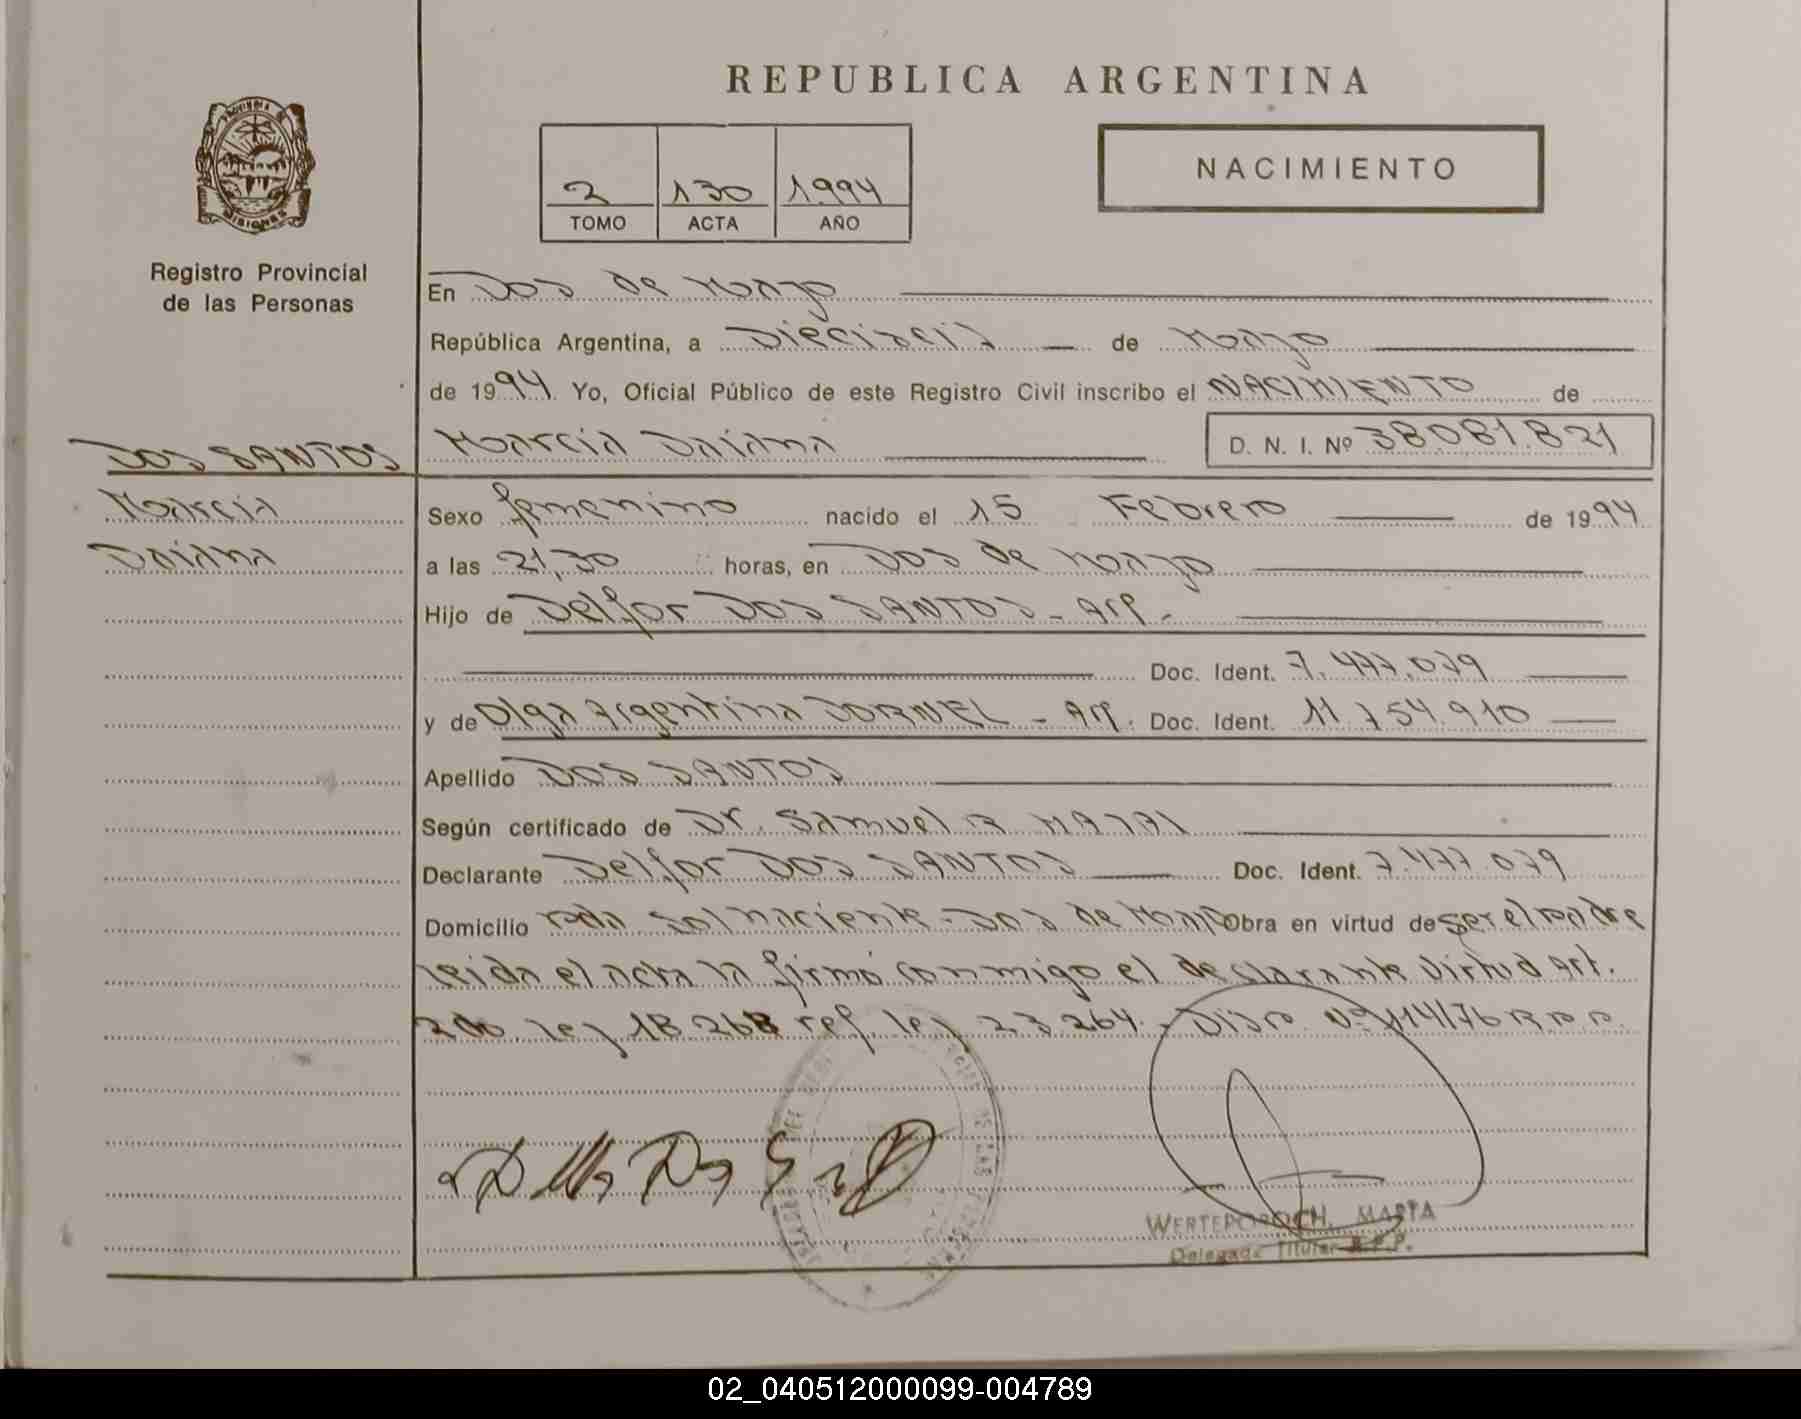 REPUBLICA ARGENTINA
NACIMIENTO
2 130 1.994
TOMO ACTA AÑO
PROVINCIA
MISIONES
Registro Provincial
de las Personas
En Dos de Marzo
República Argentina, a Dieciseis de Marzo
de 1994 Yo, Oficial Público de este Registro Civil inscribo el NACIMIENTO de
DOS SANTOS
Marcia
Daiana
Marcia Daiana D. N. I. Nº 38.081.821
Sexo femenino nacido el 15 Febrero de 1994
a las 21,30 horas, en Dos de Marzo
Hijo de Delfor DOS SANTOS - Arg.
Doc. Ident. 7.477.079
y de Olga Argentina DORNEL - Arg. Doc. Ident. 11.754.910
Apellido DOS SANTOS
Según certificado de Dr. Samuel
Declarante Delfor DOS SANTOS Doc. Ident. 7.477.079
Domicilio Sol naciente - Dos de Marzo Obra en virtud de ser el padre
leida el acta la firmó conmigo el declarante Virtud Art.
ley 18.268 ref. ley 23.264 - Disp. Nº 114/76 R.P.P.
WERTEPOROCH, MARTA
Delegada Titular R.P.P.
02_040512000099-004789